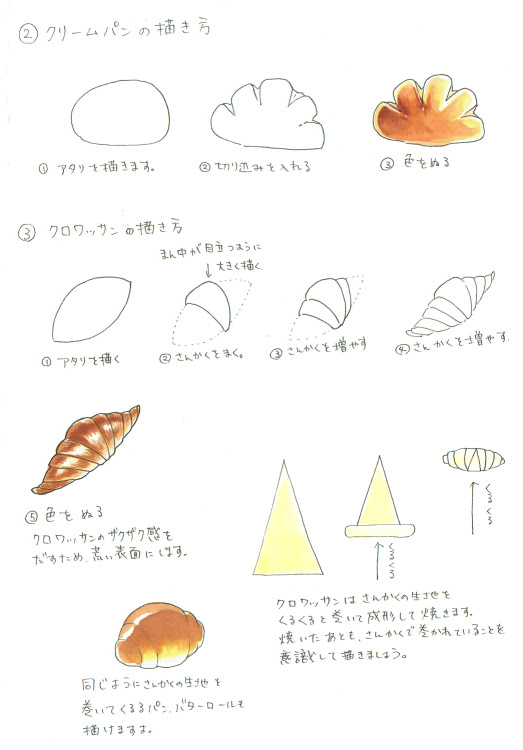 ② クリームパンの描き方
① アタリを描きます。
② 切り込みを入れる
③ 色をぬる
③ クロワッサンの描き方
まん中が目立つように
大きく描く
① アタリを描く
② さんかくをまく。
③ さんかくを増やす
④ さんかくを増やす.
⑤ 色をぬる
クロワッサンのザクザク感を
だすため、荒い表面にします。
くるくる
くるくる
クロワッサンはさんかくの生地を
くるくると巻いて成形して焼きます。
焼いたあとも、さんかくで巻かれていることを
意識して描きましょう。
同じようにさんかくの生地を
巻いてくるるパン、バターロールも
描けますよ。